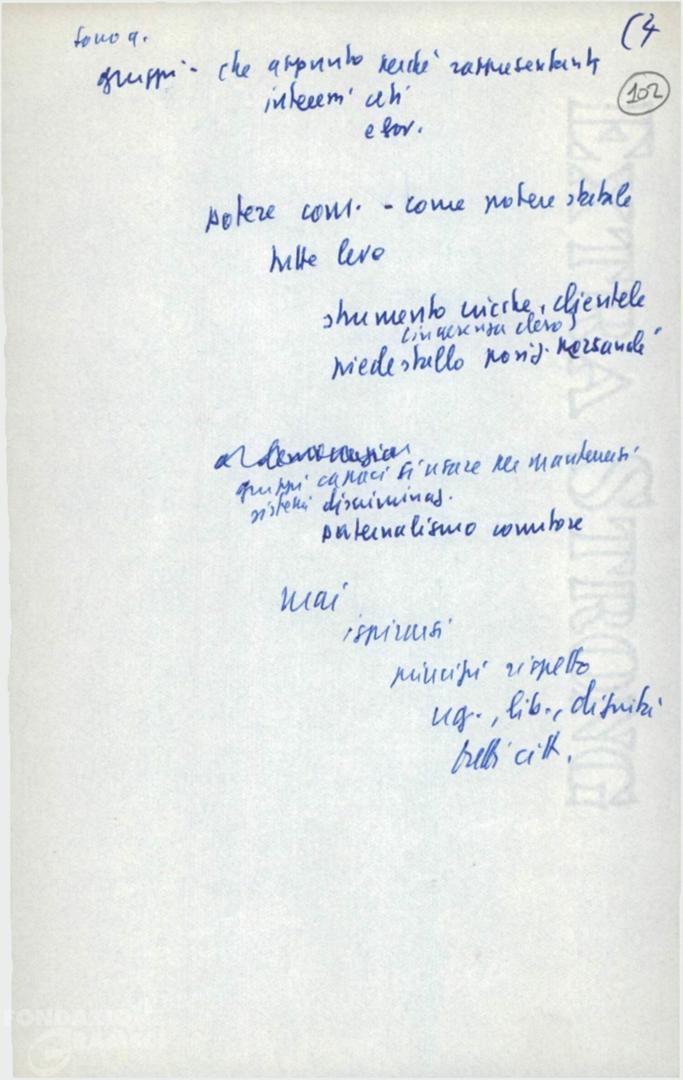 (4
102
gruppi - che appunto perché rappresentanti
interessi
potere com. - come potere statale
tutte
strumento cricche, clientele
(ingerenza clero)
piedestallo posiz. personali
gruppi capaci di usare per mantenersi
sistemi discriminaz.
paternalismo
mai
ispirarsi
principi rispetto
ug., lib., dignità
citt.
EXTRA STRONG
FONDAZIONE
GRAMSCI